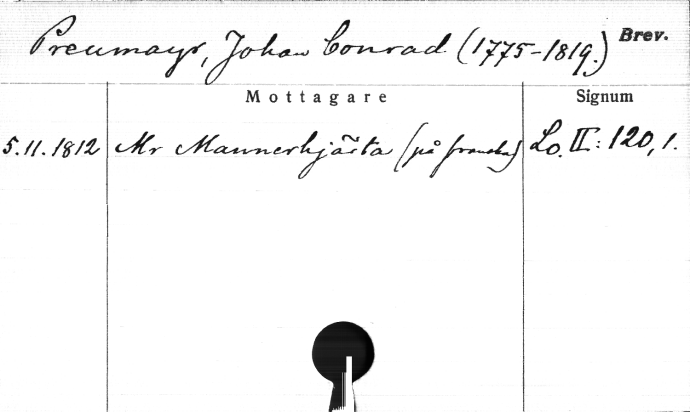 Preumayr, Johan Conrad (1775-1819.) Brev.
Mottagare Signum
5.11.1812 Mr Mannerhjärta (på franska) Lo. II: 120, 1.